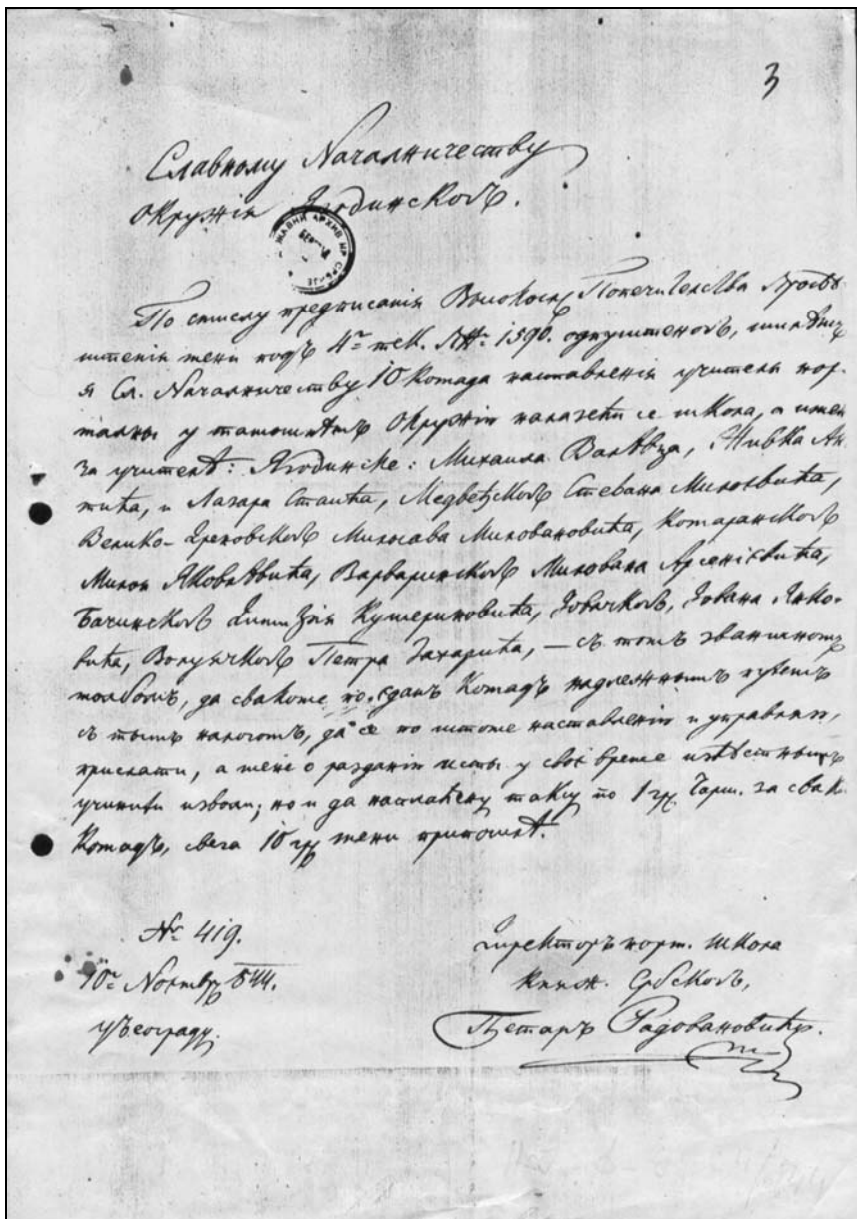 3
Славному Началничеству
Окружія Ягодинскогъ.
ДРЖАВНИ АРХИВ НР СРБИЈЕ
По смислу предписанія Високосл. Попечителства Просвѣ-
штенія мени подъ 4г тек. ПNo 1590. одпуштеногъ,
я Сл. Началничеству 10 комада наставленія учитеља нор-
малны у тамошнѣмъ Окружію налазећи се школа, а имен
за учителѣ: Ягодинске: Михаила Валѣвца, Живка Ан-
тића, и Лазара Стаића, Медвеђскогъ Стевана Милоєвића,
Велико-Дреновскогъ Милосава Миловановића, Комаранскогъ
Милоя Яковлѣвића, Варваринскогъ Милована Арсеніевића,
Бачинскогъ Димитрія Кушериновића, Јовачкогъ, Јована Янко-
вића, Волуячкогъ Петра Захарића, — съ томъ званичномъ
молбомъ, да свакоме по єданъ комадъ надлежнымъ путемъ
съ тымъ налогомъ, да се по истоме наставленію и управляю,
прислати, а мене о разданію исты у своє време извѣстнымъ
учинити изволи; но и да наплаћену таксу по 1 гр. чарш. за свак.
Комадъ, свега 10 гр. мени припошлѣ.
No 419.
10г Ноемвр. 844.
у Београду.
Директоръ норм. школа
Княж. Србскогъ,
Петаръ Радовановићъ.